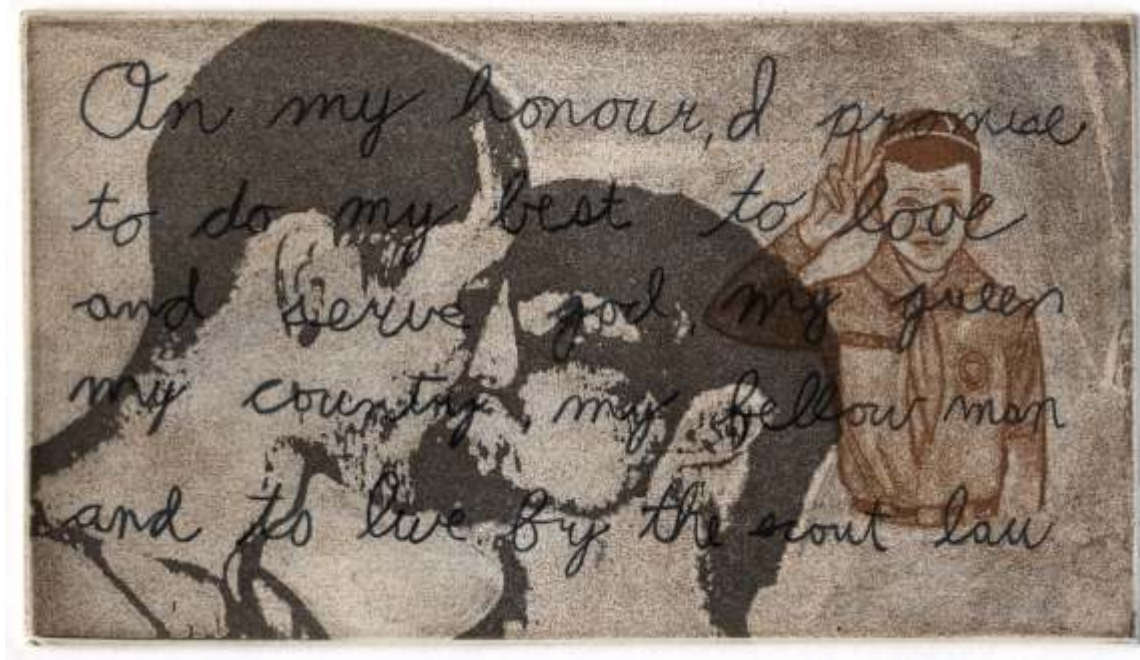 On my honour, I promise
to do my best to love
and serve god, my queen
my country my fellow man
and to live by the scout law